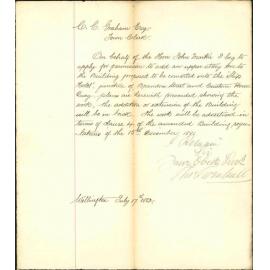 C. C. Graham Esq
Town Clerk
On behalf of the Hon John Martin I beg to
apply for permission to add an upper story to
the Building proposed to be connected with the Pier
Hotel, junction of Brandon Street and Custom House
Quay, plans are herewith presented showing the
work, the addition or extension of the Building
will be in back. The work will be advertised in
terms of clause 4 of the amended Building regu
lations of the 15th December 1881
I remain
Yours Obedt Servt
Wellington July 17th 1883